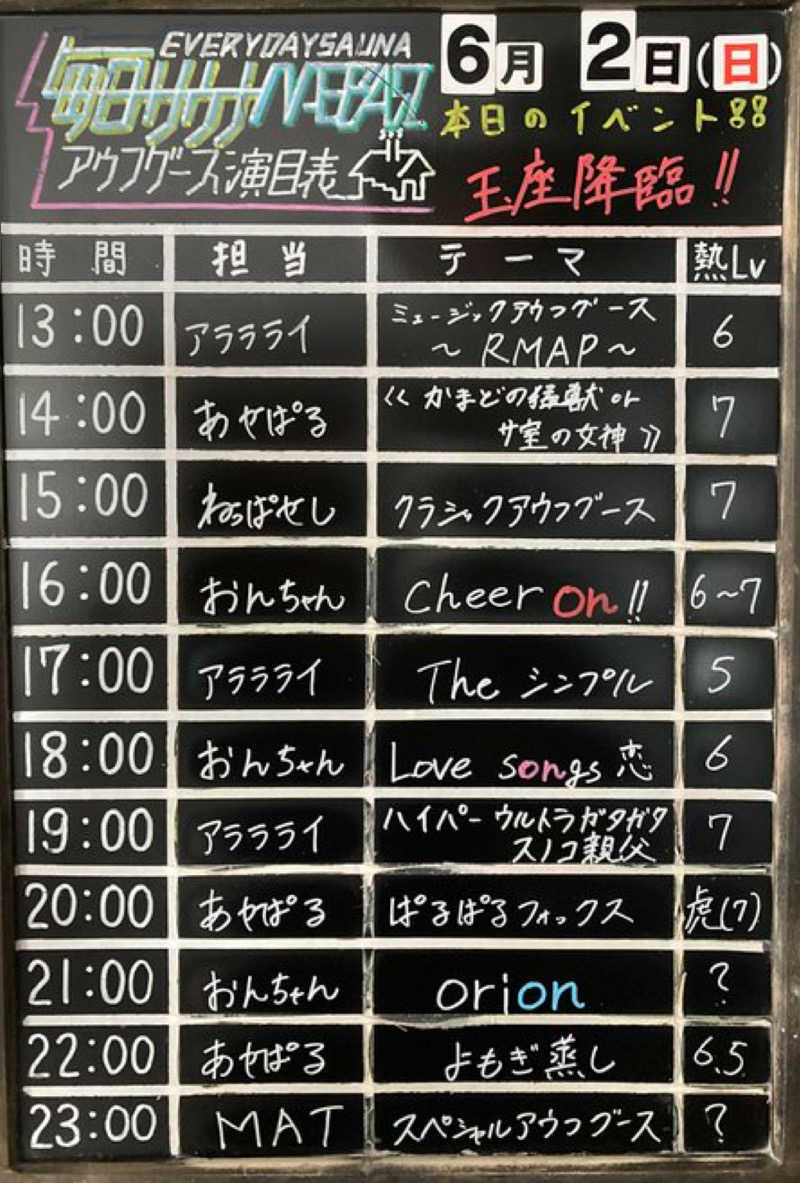 EVERYDAYSAUNA
毎日サウナ MAEBASI
アウフグース演目表
6月 2日(日)
本日のイベント
玉座降臨!!
時間 担当 テーマ 熱Lv
13:00 アラララライ ミュージックアウフグース 6
~ RMAP ~
14:00 あせぱる << かまどの猛獣 or 7
サ室の女神 >>
15:00 ねっぱせし クラシックアウフグース 7
16:00 おんちゃん Cheer on!! 6~7
17:00 アララライ The シンプル 5
18:00 おんちゃん Love songs 恋 6
19:00 アララライ ハイパーウルトラガタガタ 7
スノコ親父
20:00 あせぱる ぱるぱるフォックス 虎(7)
21:00 おんちゃん orion ?
22:00 あせぱる よもぎ蒸し 6.5
23:00 MAT スペシャルアウフグース ?